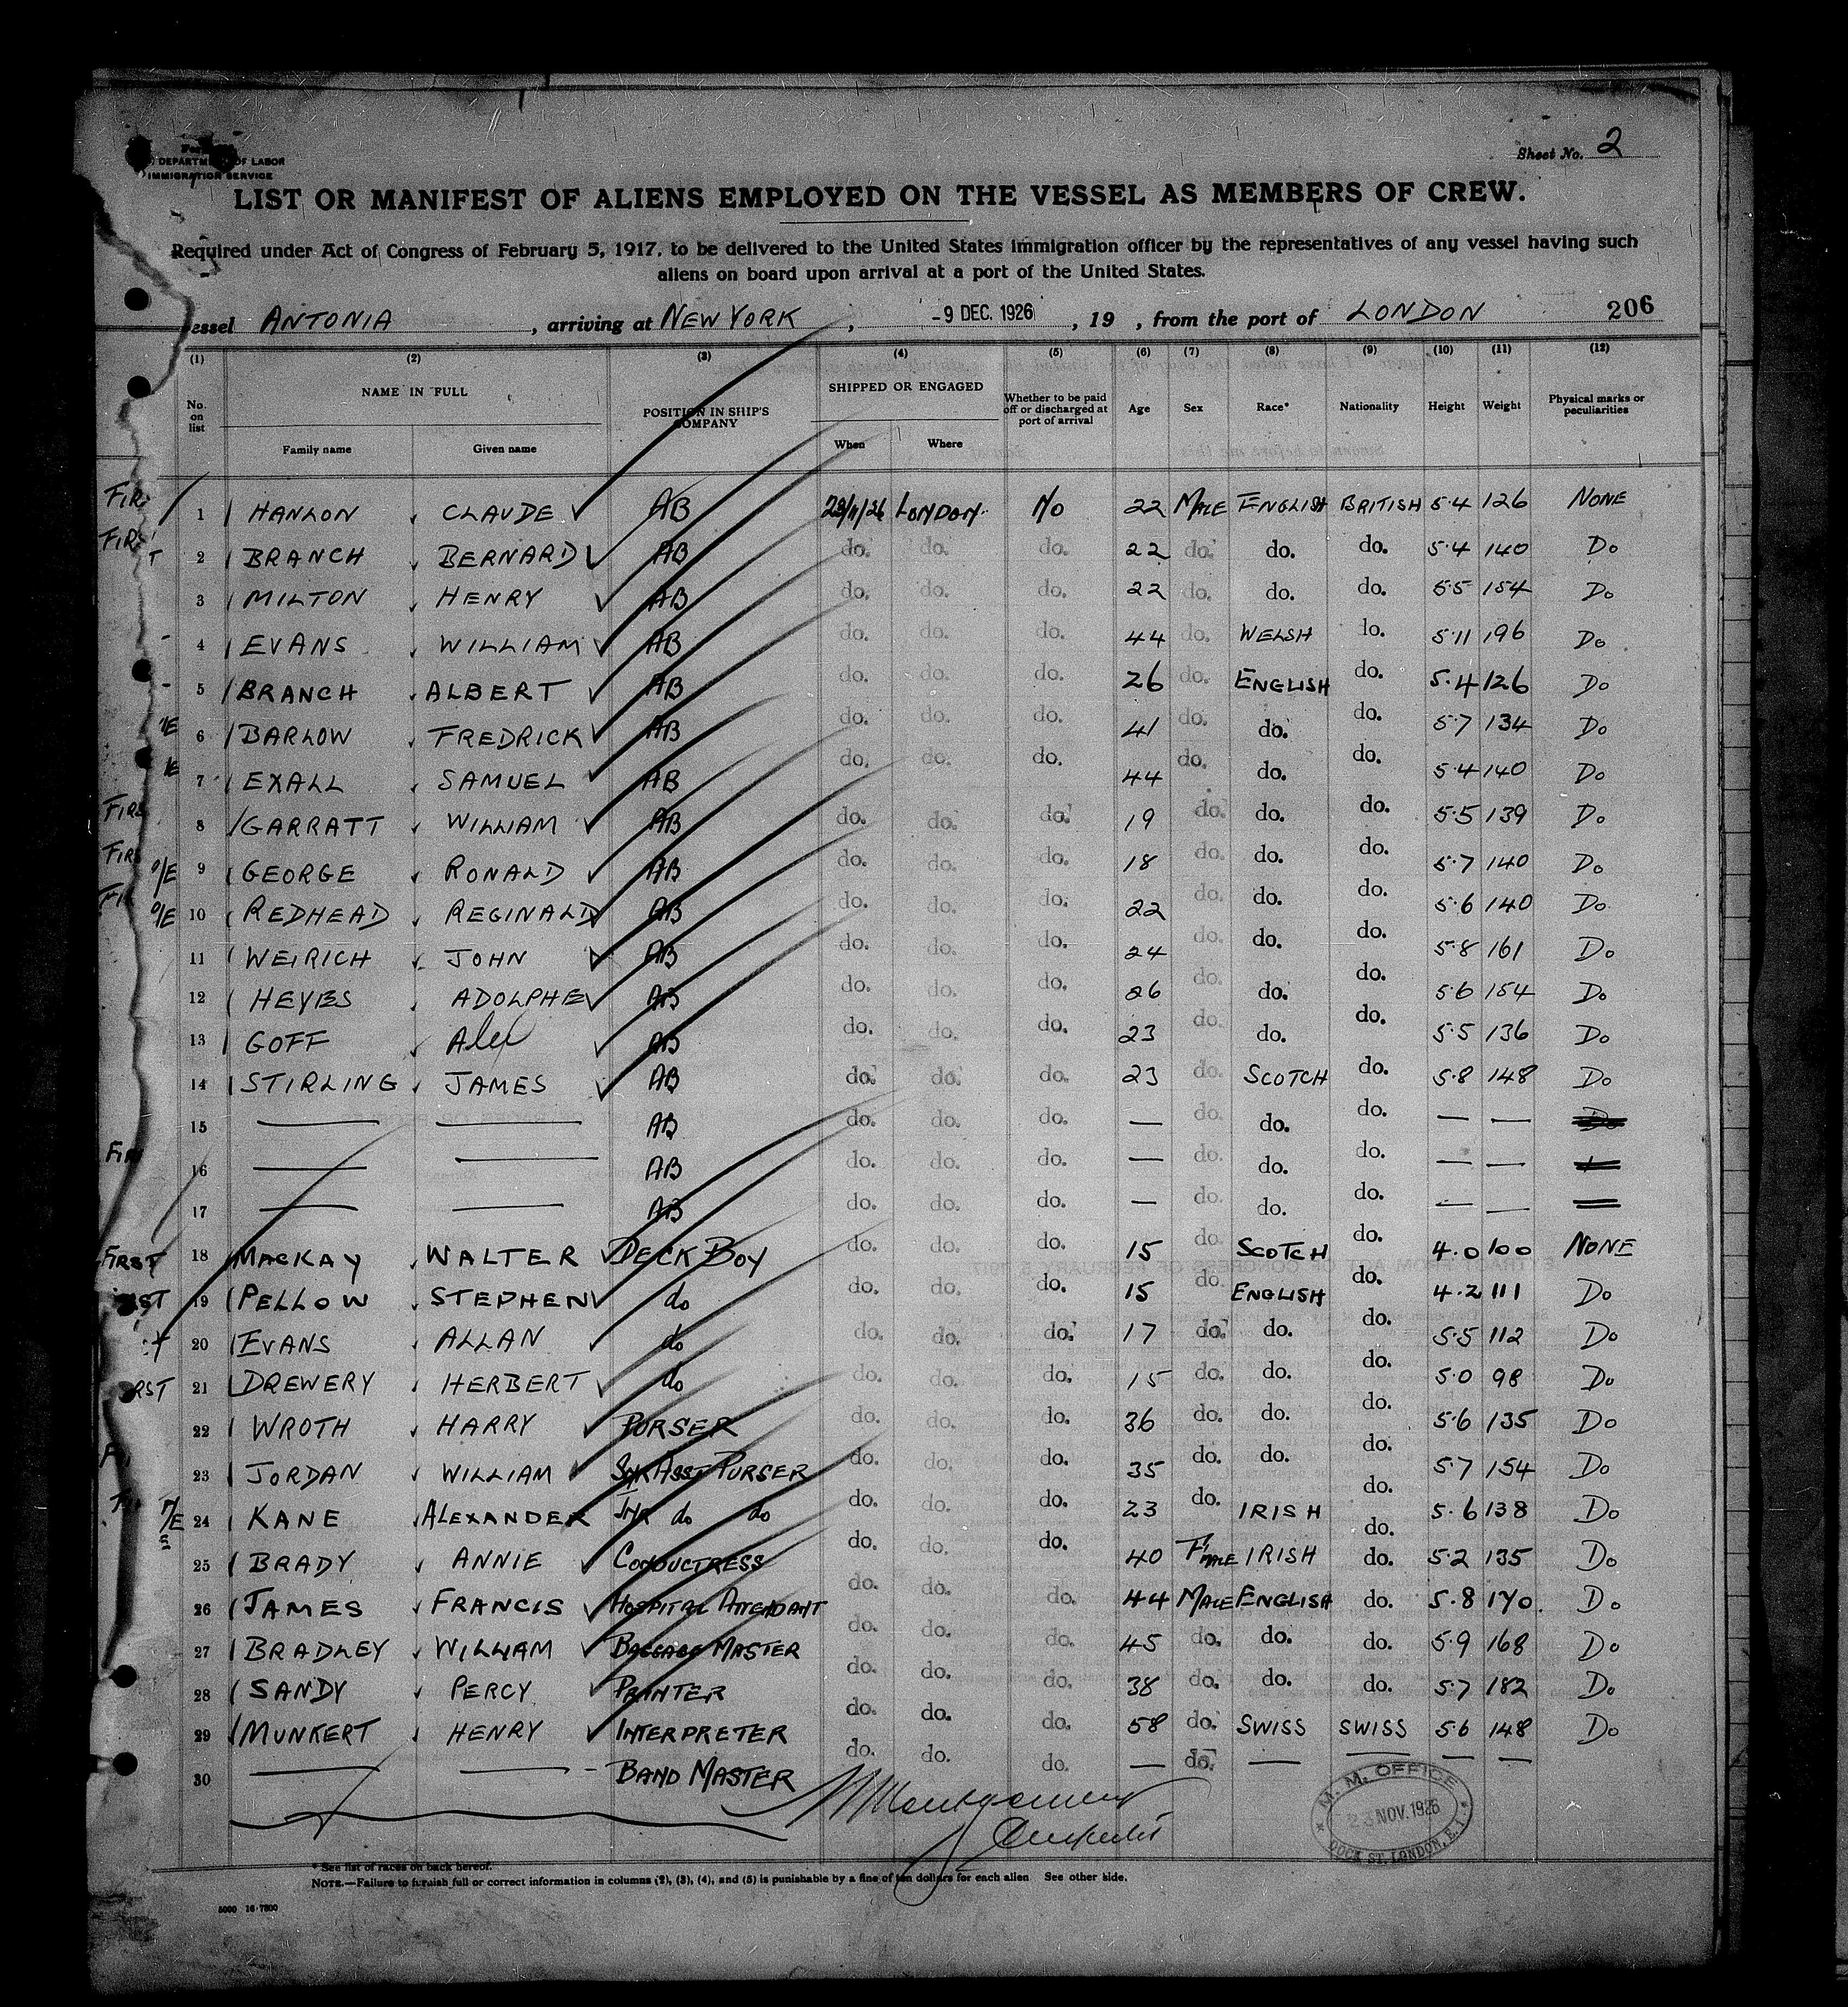 Sheet No. 2
DEPARTMENT OF LABOR
IMMIGRATION SERVICE
LIST OR MANIFEST OF ALIENS EMPLOYED ON THE VESSEL AS MEMBERS OF CREW.
Required under Act of Congress of February 5, 1917, to be delivered to the United States immigration officer by the representatives of any vessel having such
aliens on board upon arrival at a port of the United States.
essel ANTONIA, arriving at NEW YORK, -9 DEC. 1926, 19 , from the port of LONDON 206
(1) (2) (3) (4) (5) (6) (7) (8) (9) (10) (11) (12)
No. on list NAME IN FULL Family name Given name POSITION IN SHIP'S COMPANY SHIPPED OR ENGAGED When Where Whether to be paid off or discharged at port of arrival Age Sex Race* Nationality Height Weight Physical marks or peculiarities
FIRS 1 HANLON CLAUDE AB 23/11/26 LONDON No 22 MALE ENGLISH BRITISH 5.4 126 NONE
FIRST 2 BRANCH BERNARD AB do. do. do. 22 do. do. do. 5.4 140 Do
3 MILTON HENRY AB do. do. do. 22 do. do. do. 5.5 154 Do
4 EVANS WILLIAM AB do. do. do. 44 do. WELSH do. 5.11 196 Do
5 BRANCH ALBERT AB do. do. do. 26 do. ENGLISH do. 5.4 126 Do
6 BARLOW FREDRICK AB do. do. do. 41 do. do. do. 5.7 134 Do
7 EXALL SAMUEL AB do. do. do. 44 do. do. do. 5.4 140 Do
FIRS 8 GARRATT WILLIAM AB do. do. do. 19 do. do. do. 5.5 139 Do
FIRS O/E 9 GEORGE RONALD AB do. do. do. 18 do. do. do. 5.7 140 Do
FI O/E 10 REDHEAD REGINALD AB do. do. do. 22 do. do. do. 5.6 140 Do
11 WEIRICH JOHN AB do. do. do. 24 do. do. do. 5.8 161 Do
12 HEYES ADOLPHE AB do. do. do. 26 do. do. do. 5.6 154 Do
13 GOFF Alex AB do. do. do. 23 do. do. do. 5.5 136 Do
14 STIRLING JAMES AB do. do. do. 23 do. SCOTCH do. 5.8 148 Do
15 — — AB do. do. do. — do. do. do. — — Do
16 — — AB do. do. do. — do. do. do. — —
17 — — AB do. do. do. — do. do. do. — —
FIRST 18 MACKAY WALTER DECK BOY do. do. do. 15 do. SCOTCH do. 4.0 100 NONE
ST 19 PELLOW STEPHEN do do. do. do. 15 do. ENGLISH do. 4.2 111 Do
20 EVANS ALLAN do do. do. do. 17 do. do. do. 5.5 112 Do
RST 21 DREWERY HERBERT do do. do. do. 15 do. do. do. 5.0 98 Do
22 WROTH HARRY PURSER do. do. do. 36 do. do. do. 5.6 135 Do
23 JORDAN WILLIAM SNR ASST PURSER do. do. do. 35 do. do. do. 5.7 154 Do
24 KANE ALEXANDER JNR do do do. do. do. 23 do. IRISH do. 5.6 138 Do
25 BRADY ANNIE CONDUCTRESS do. do. do. 40 F'MALE IRISH do. 5.2 135 Do
26 JAMES FRANCIS HOSPITAL ATTENDANT do. do. do. 44 MALE ENGLISH do. 5.8 170. Do
27 BRADLEY WILLIAM BAGGAGE MASTER do. do. do. 45 do. do. do. 5.9 168 Do
28 SANDY PERCY PRINTER do. do. do. 38 do. do. do. 5.7 182 Do
29 MUNKERT HENRY INTERPRETER do. do. do. 58 do. SWISS SWISS 5.6 148 Do
30 — — BAND MASTER do. do. do. — do. — — — —
M. M. OFFICE
23 NOV. 1926
DOCK ST. LONDON, E. 1
* See list of races on back hereof.
NOTE.—Failure to furnish full or correct information in columns (2), (3), (4), and (5) is punishable by a fine of ten dollars for each alien See other side.
5000 16-7800